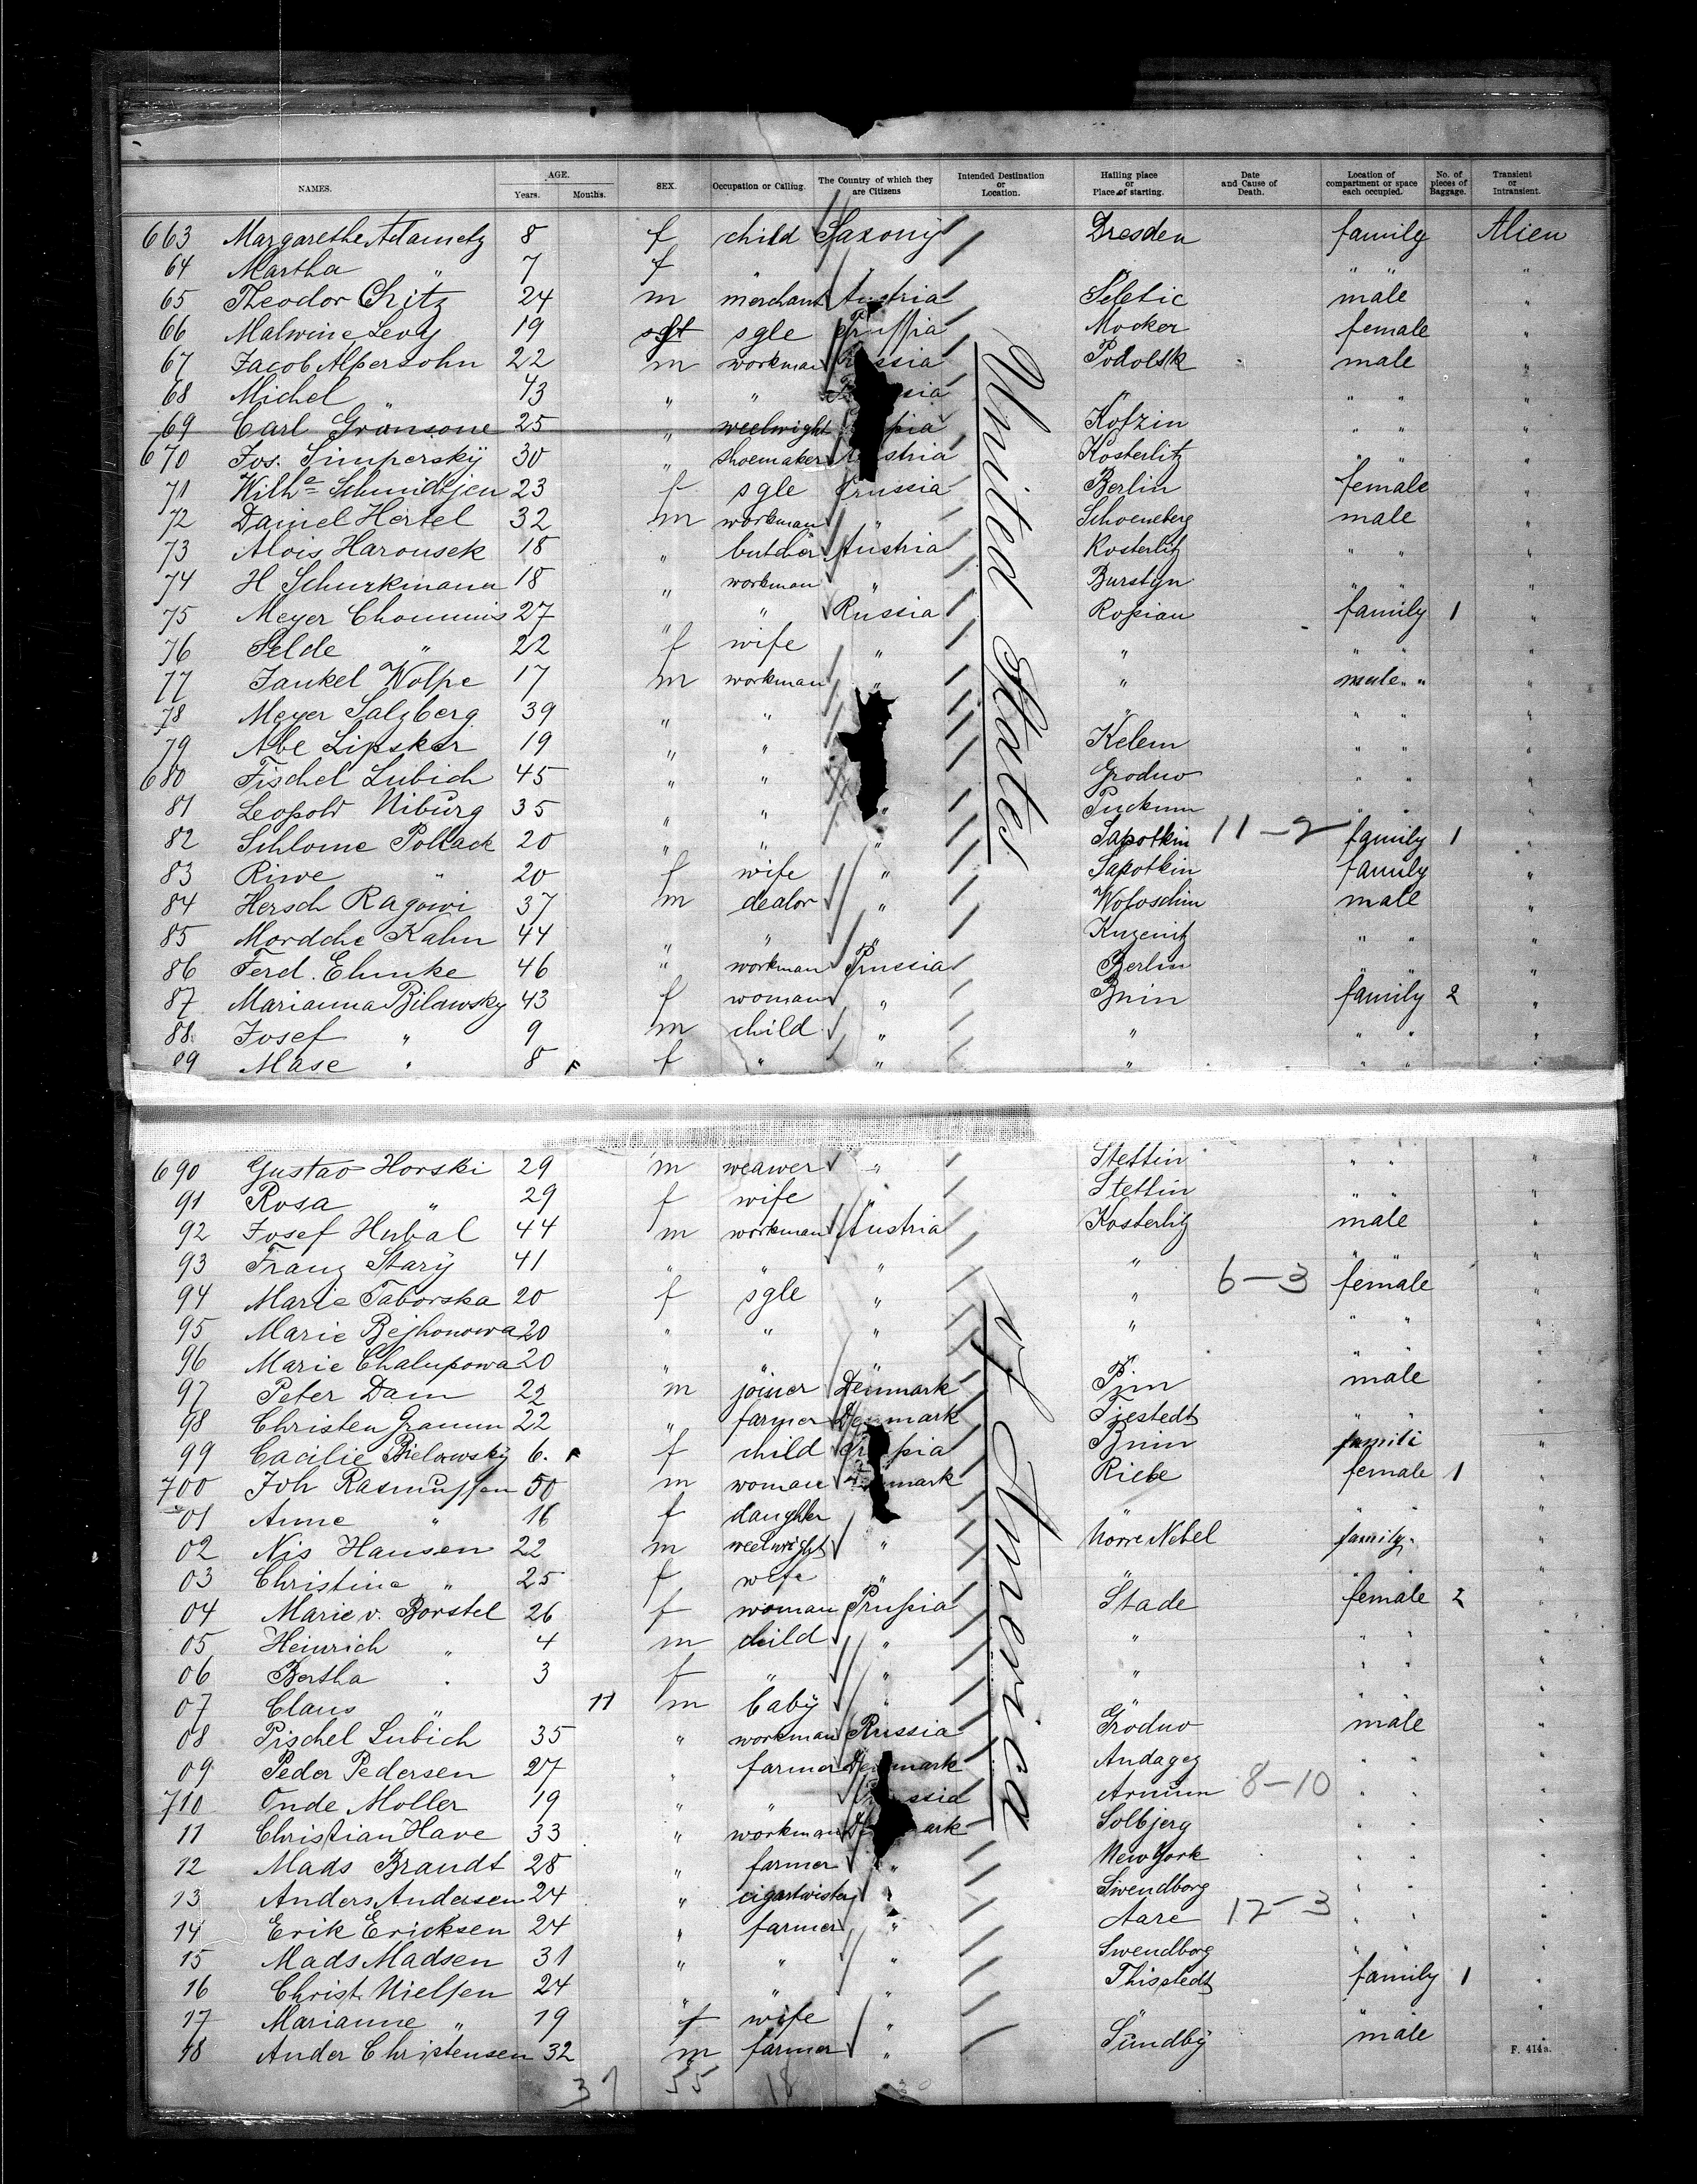 NAMES. AGE. Years. Months. SEX. Occupation or Calling. The Country of which they are Citizens Intended Destination or Location. Hailing place or Place of starting. Date and Cause of Death. Location of compartment or space each occupied. No. of pieces of Baggage. Transient or Intransient.
663 Margarethe Adametz 8 f child Saxony Dresden family Alien
64 Martha " 7 f " " " " " "
65 Theodor Chitz 24 m merchant Austria Seletic male "
66 Malwine Levy 19 f sgle Prussia Mocker female "
67 Jacob Alpersohn 22 m workman Russia Podolsk male "
68 Michel " 43 " " " " " "
69 Carl Gronsone 25 " weelwright Kofzin " " "
670 Jos. Simperskÿ 30 " shoemaker Austria Kosterlitz " " "
71 Wilhe Schmidtjen 23 f sgle Prussia Berlin female "
72 Daniel Hertel 32 m workman " Schoeneberg male "
73 Alois Harousek 18 " butcher Austria Kosterlitz " " "
74 H Schurkmann 18 " workman " Burstyn " " "
75 Meyer Choummis 27 " " Russia Ropian family 1 "
76 Selde " 22 f wife " " " " "
77 Jankel Wolpe 17 m workman " " male " "
78 Meyer Salzberg 39 " " " " " "
79 Abe Lipsker 19 " " Kelem " " "
680 Fischel Lubich 45 " " Grodno " " "
81 Leopold Niburg 35 " " " Tuckum " " "
82 Schlome Pollack 20 " " " Sapotkin 11-2 family 1 "
83 Riwe " 20 f wife " Sapotkin family "
84 Hersch Ragowi 37 m dealer " Woloschin male "
85 Mordche Kahn 44 " " " Kuzenitz " " "
86 Ferd. Ehmke 46 " workman Prussia Berlin " " "
87 Marianna Bilawsky 43 f woman " Bnin family 2 "
88 Josef " 9 m child " " " " "
89 Mase " 8 f " " " " " "
690 Gustav Horski 29 m weawer " Stettin " " "
91 Rosa " 29 f wife " Stettin " " "
92 Josef Hubal 44 m workman Austria Kosterlitz male "
93 Franz Starÿ 41 " " " " " " "
94 Marie Taborska 20 f sgle " " 6-3 female "
95 Marie Bejhonowa 20 " " " " " " "
96 Marie Chalupowa 20 " " " " " " "
97 Peter Dam 22 m joiner Denmark male "
98 Christen Gramm 22 " farmer Denmark Tiestedt " " "
99 Cacilie Bielawsky 6. f child Bnin famili "
700 Joh Rasmussen 50 m woman Riebe female 1 "
01 Anne " 16 f daughter " " " "
02 Nis Hansen 22 m weelwright " Norre Nebel family "
03 Christine " 25 f wife " " " " "
04 Marie v. Borstel 26 f woman Prussia Stade female 2 "
05 Heinrich " 4 m child " " " " "
06 Bertha " 3 f " " " " " "
07 Claus " 11 m baby " " " "
08 Pischel Lubich 35 " workman Russia Grodno male "
09 Peder Pedersen 27 " farmer Denmark Andagez " " "
710 Onde Moller 19 " " Arnum 8-10 " " "
11 Christian Have 33 " workman Denmark Solbjerg " " "
12 Mads Brandt 28 " farmer " New York " " "
13 Anders Andersen 24 " cigartwister " Swendborg " " "
14 Erik Ericksen 24 " farmer " Aare 12-3 " " "
15 Mads Madsen 31 " " " Swendborg " " "
16 Christ. Nielsen 24 " " " Thisstedt family 1 "
17 Marianne " 19 f wife " " " " "
18 Ander Christensen 32 m farmer " Sundbÿ male "
United States of America
F. 414a.
37 55 18